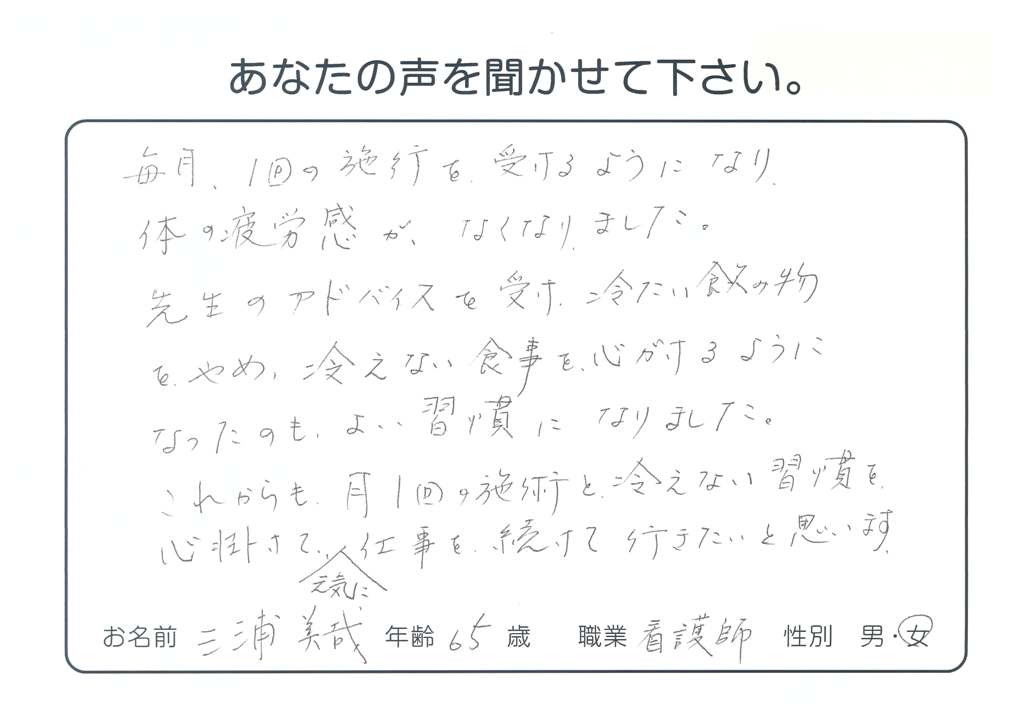 あなたの声を聞かせて下さい。
毎月、1回の施行を受けるようになり
体の疲労感が、なくなりました。
先生のアドバイスを受け、冷たい飲み物
をやめ、冷えない食事を心がけるように
なったのも、よい習慣になりました。
これからも、月1回の施術と、冷えない習慣を
心掛けて、元気に仕事を続けて行きたいと思います
お名前 三浦美哉 年齢 65 歳 職業 看護師 性別 男・女